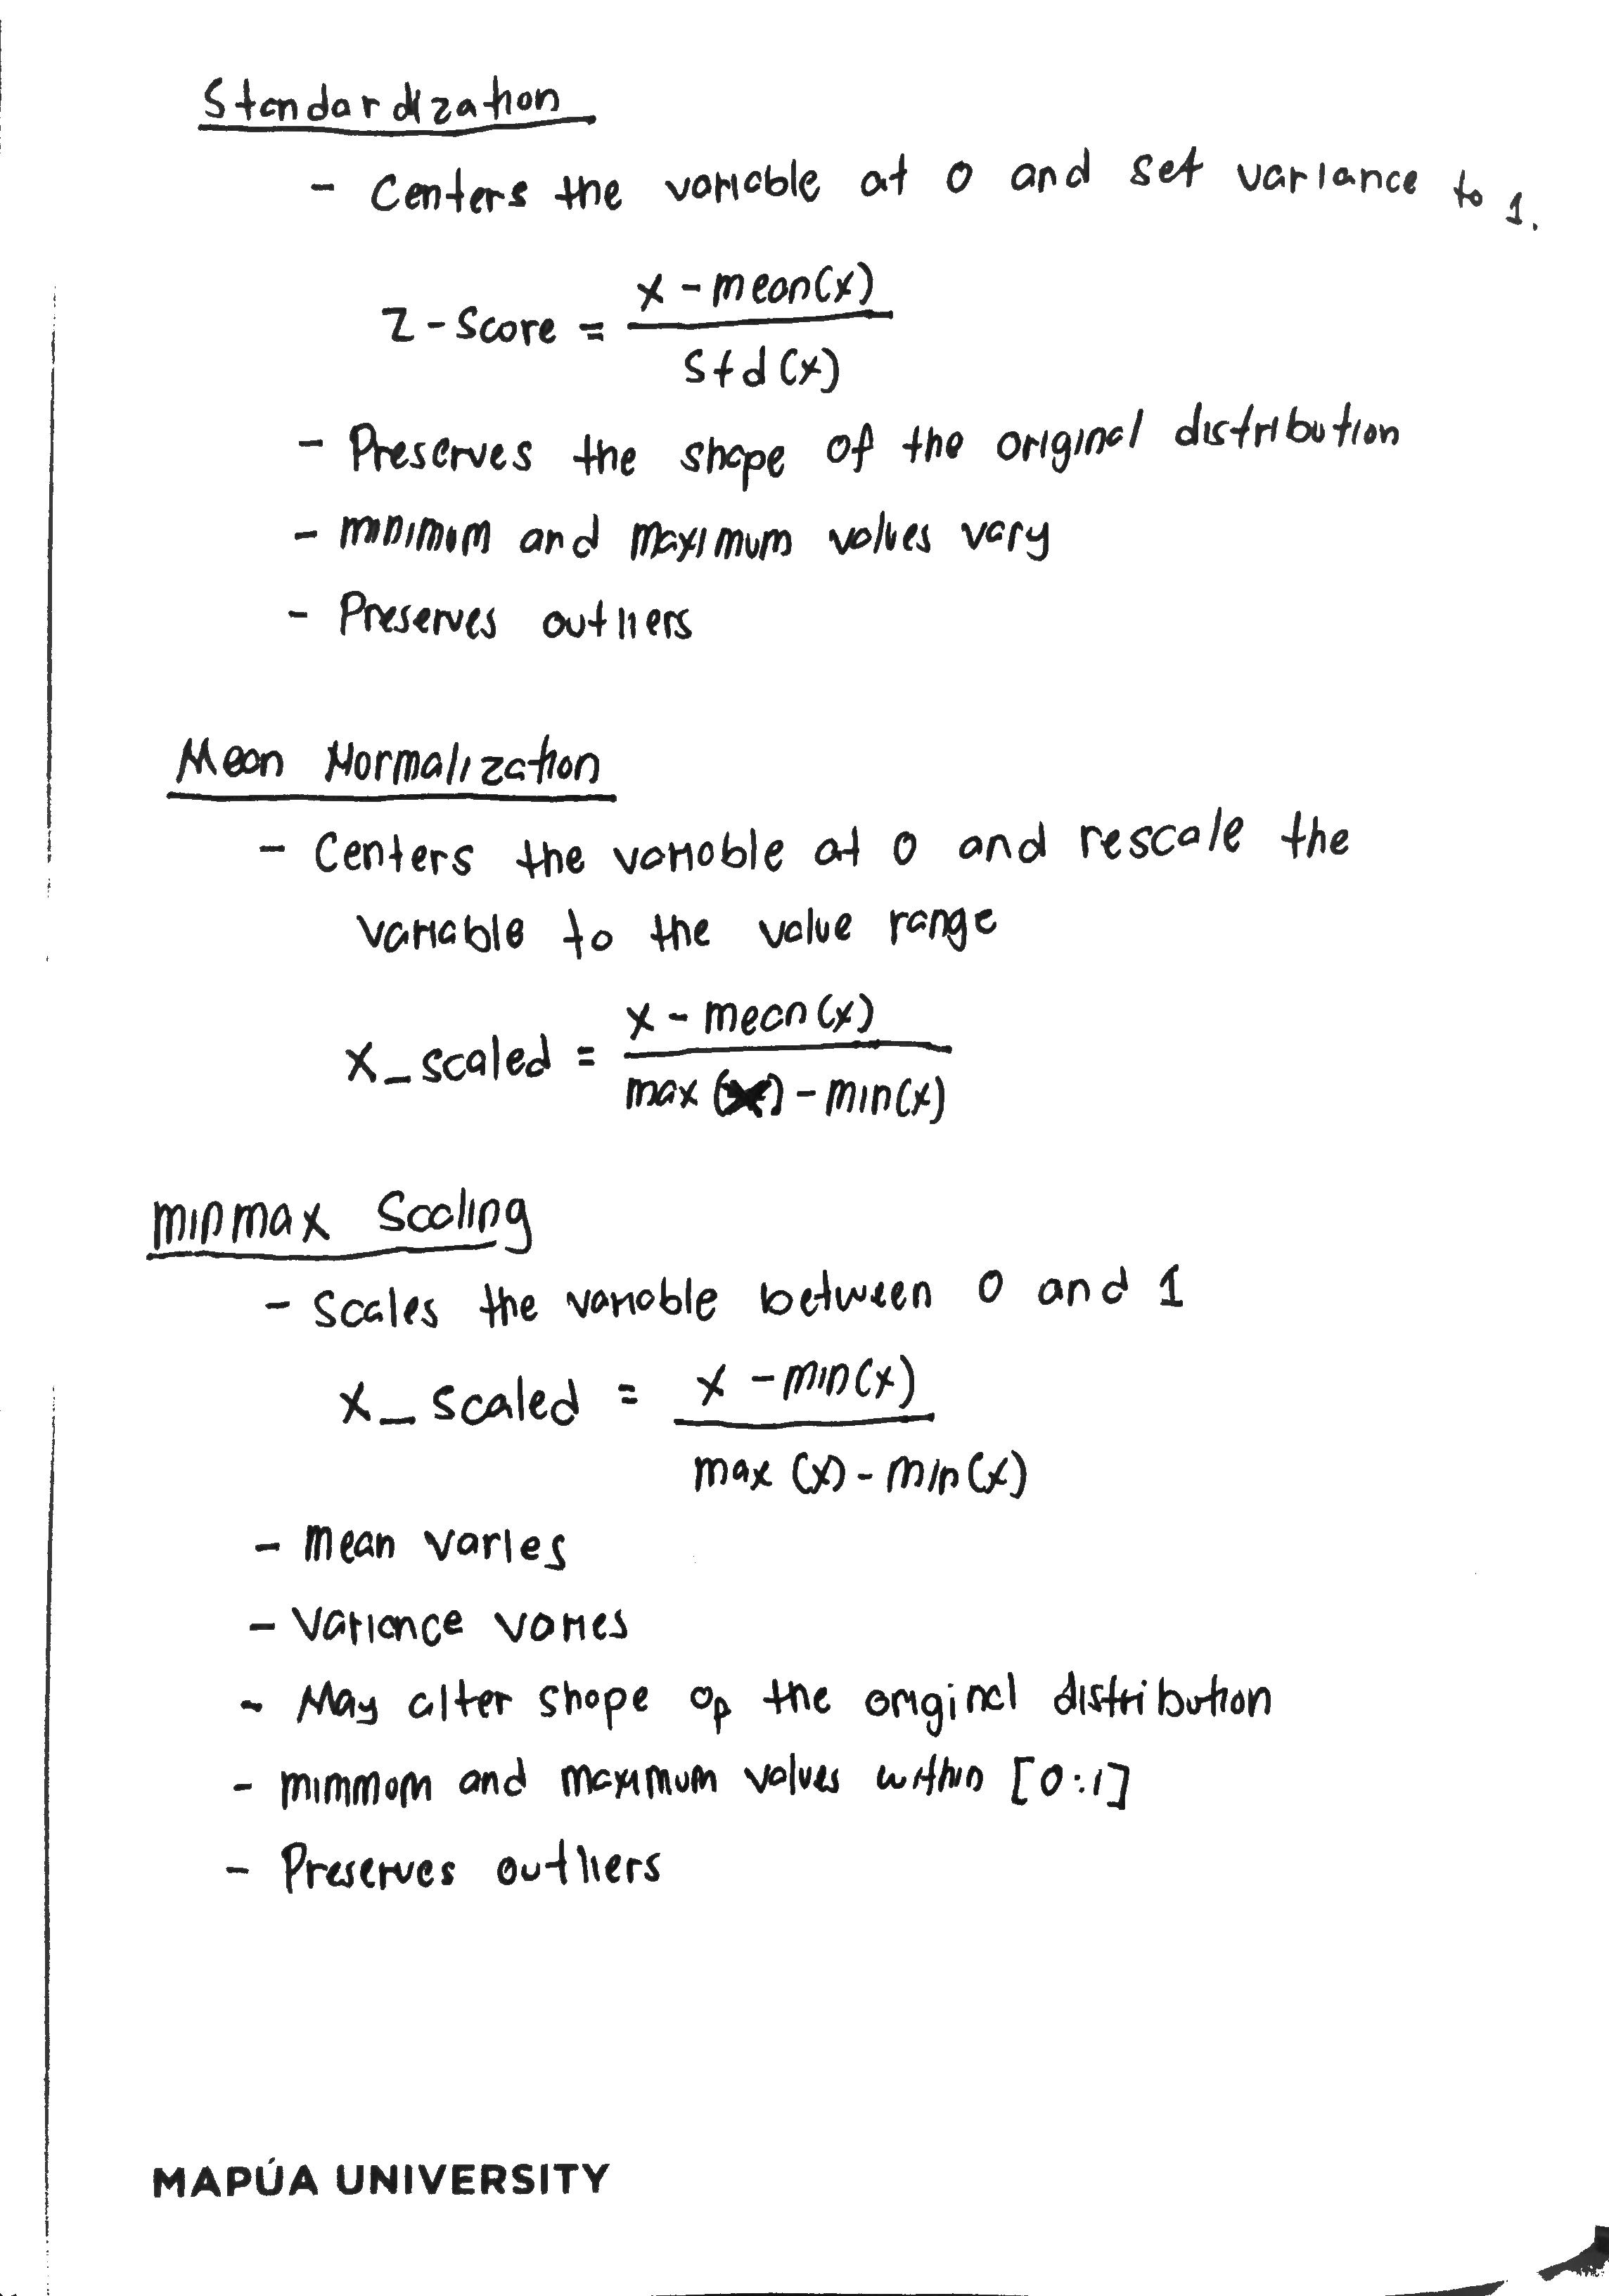 Standardization
- Centers the variable at 0 and set variance to 1.
Z-Score = x - mean(x) / Std(x)
- Preserves the shape of the original distribution
- minimum and maximum values vary
- Preserves outliers
Mean Normalization
- Centers the variable at 0 and rescale the
variable to the value range
X_scaled = x - mean(x) / max(x) - min(x)
minmax Scaling
- Scales the variable between 0 and 1
X_scaled = x - min(x) / max(x) - min(x)
- mean varies
- Variance varies
- May alter shape of the original distribution
- minimum and maximum values within [0:1]
- Preserves outliers
MAPÚA UNIVERSITY